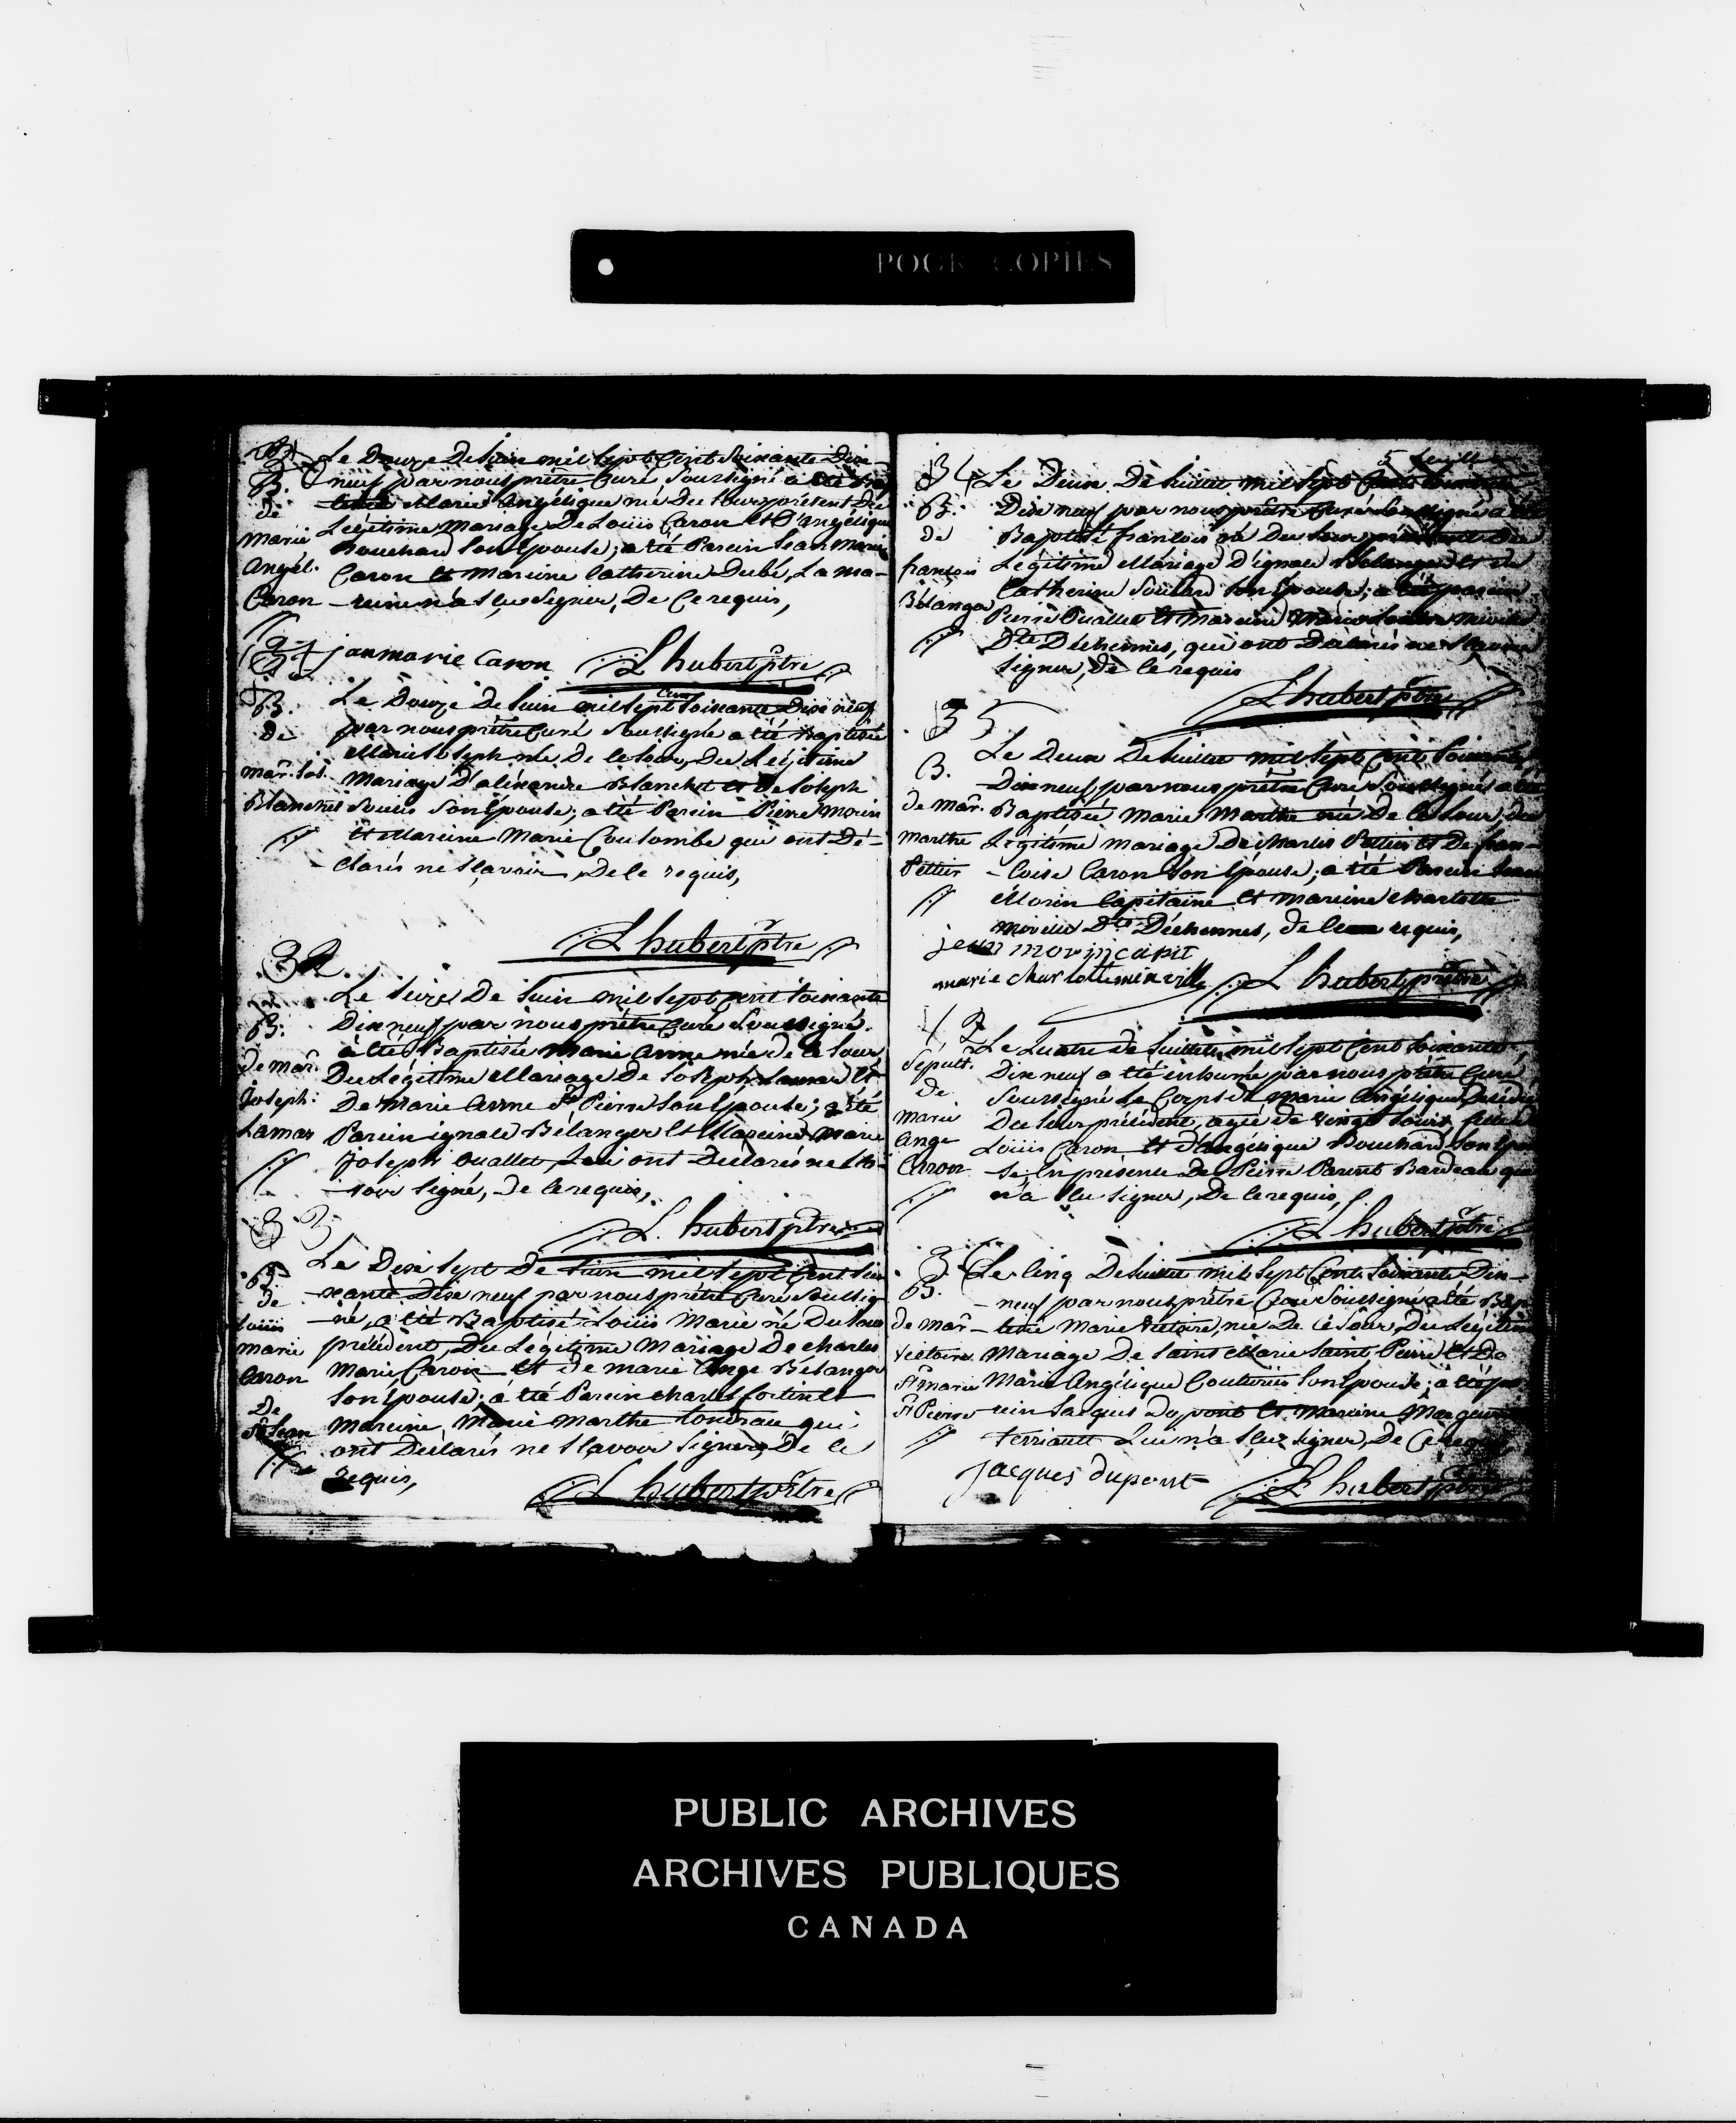 POCK COPIES
B.
de
Marie
Angél.
Caron
Le Douze De Juin mil Sept Cent Soixante Dix
neuf par nous prêtre Curé Soussigné a été Bap
tisée Marie Angélique née Du Jour présent Du
Légitime Mariage De Loüis Caron et D'angélique
Bouchard Son Epouse; a été Parein Jean Marie
Caron et Mareine Catherine Dubé, La ma-
reine n'a Sçu Signer, De Ce requis,
jan marie Caron L hubert ptre
B.
de
mar. Jos.
Blanchet
Le Douze De Juin mil Sept Cent Soixante Dix neuf
par nous prêtre Curé Soussigné a été Baptisée
Marie Joseph née De Ce Jour, Du Légitime
Mariage D'aléxandre Blanchet et De Joseph
Soucis Son Epouse; a été Parein Pierre Morin
et Mareine Marie Coulombe qui ont Dé-
clarés ne Sçavoir, De Ce requis,
L hubert ptre
32
B.
de mar.
Joseph:
Lamar
Le Seize De Juin mil Sept Cent Soixante
Dix neuf par nous prêtre Curé Soussigné
a été Baptisée Marie Anne née De Ce Jour
Du Légitime Mariage De Joseph Lamar et
De Marie Anne St Pierre Son Epouse; a été
Parein ignace Bélanger et Mareine Marie
Joseph Ouallet, qui ont Declarés ne
voir Signé, De Ce requis,
L. hubert ptre
33
B.
de
Loüis
Marie
Caron
De
St Jean
Le Dix Sept De Juin mil Sept Cent Soi
xante Dix neuf par nous prêtre Curé Soussig
né, a été Baptisé Loüis Marie né Du Jour
précédent, Du Légitime Mariage De charles
Marie Caron et de Marie Ange Bélanger
Son Epouse; a été Parein charles fortin et
Mareine Marie Marthe Tondreau qui
ont Déclarés ne Sçavoir Signer, De Ce
requis,
L hubert ptre
5
34
B.
de
françois
Bélanger
Le Deux De Juillet mil Sept Cent Soixante
Dix neuf par nous prêtre Curé Soussigné a été
Baptisé francois né Du Jour précédent Du
Légitime Mariage D'ignace Bélanger et de
Catherine Soulard Son Epouse; a été parein
Pierre Ouallet et Mareine Marie
Dte Déchennes, qui ont Déclarés ne Sçavoir
Signer, De Ce requis
L hubert ptre
35
B.
de mar.
Marthe
Pettier
Le Deux De Juillet mil Sept Cent Soixante
Dix neuf par nous prêtre Curé Soussigné a été
Baptisée Marie Marthe née De Ce Jour, Du
Légitime Mariage De charles Pettier et De fran-
çoise Caron Son Epouse; a été Parein Jean
Morin Capitaine et Mareine charlotte
Mivile Dte Déchennes, de Ce requis,
jean morin capit
marie charlotte mivill L hubert ptre
Sépult.
de
Marie
Ange
Caron
Le Quatre de Juillet mil Sept Cent Soixante
Dix neuf a été inhumé par nous prêtre Curé
Soussigné Le Corps de Marie Angélique
Du Jour précédent, agée de vingt Jours, fille de
Loüis Caron et D'angélique Bouchard Son Epou
se, En présence De Pierre Parent Bardeau qui
n'a Sçu Signer, De Ce requis,
L hubert ptre
B.
de mar.
Victoire
St Marie
St Pierre
Le Cinq De Juillet mil Sept Cent Soixante Dix
neuf par nous prêtre Curé Soussigné a été Bap
tisée Marie Victoire, née De Ce Jour, Du Légitime
Mariage De Saint Marie Saint Pierre et De
Marie Angélique Couturier Son Epouse; a été pa
rein Jacques Dupont et Mareine
Terriault qui n'a Sçu Signer, De Ce requis
jacques dupont L hubert ptre
PUBLIC ARCHIVES
ARCHIVES PUBLIQUES
CANADA